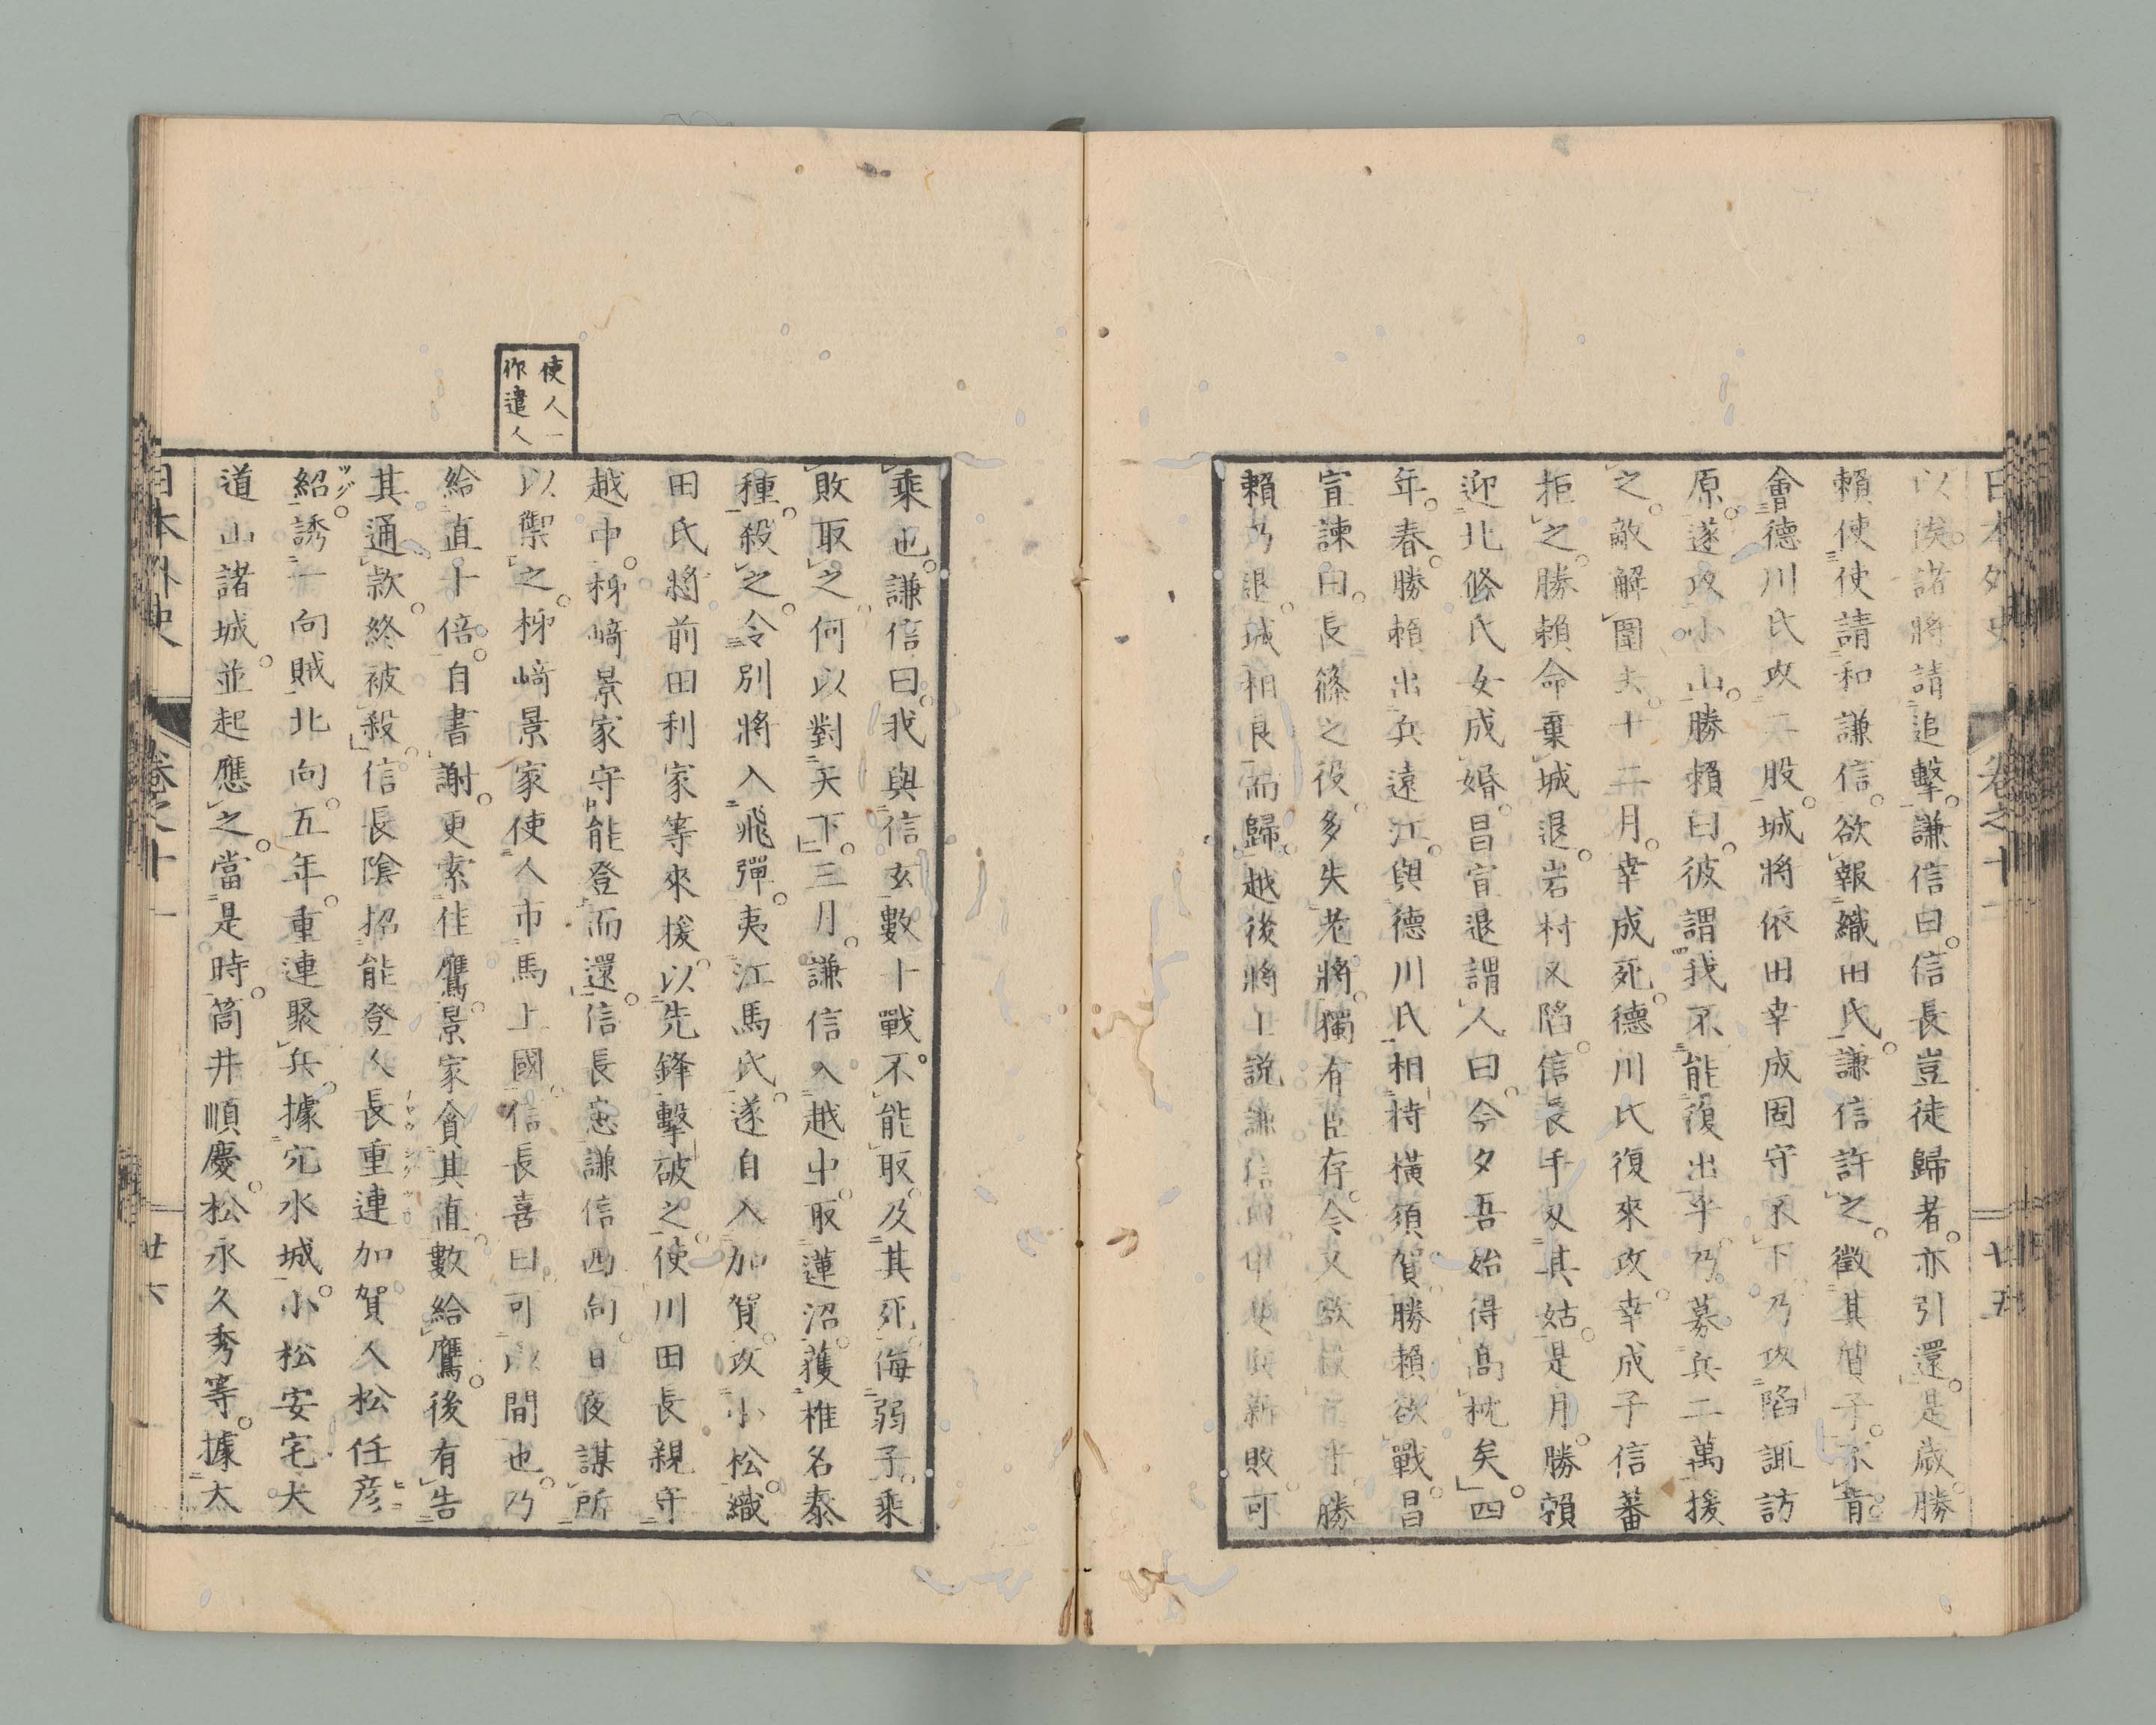 日本外史 卷之十一 廿五
以俟。諸將請追擊。謙信曰。信長豈徒歸者。亦引還。是歲。勝
賴使使請和謙信。欲報織田氏。謙信許之。徵其質子。不肯。
會德川氏攻二股。城將依田幸成固守不下。乃攻陷諏訪
原。遂攻小山。勝賴曰。彼謂我不能復出乎。乃募兵二萬援
之。敵解圍去。十二月。幸成死。德川氏復來攻。幸成子信蕃
拒之。勝賴命棄城退。岩村又陷。信長手刃其姑。是月。勝賴
迎北條氏女成婚。昌宜退謂人曰。今夕吾始得高枕矣。四
年。春。勝賴出兵遠江。與德川氏相持橫須賀。勝賴欲戰。昌
宜諫曰。長篠之役。多失老將。獨有臣存。今又 勝
賴乃退。城相良而歸。越後將士說謙信 新敗可
乘也。謙信曰。我與信玄數十戰。不能取。及其死。侮弱子。乘
敗取之。何以對天下。三月。謙信入越中。取蓮沼。獲椎名泰
種。殺之。令別將入飛彈。夷江馬氏。遂自入加賀。攻小松。織
田氏將前田利家等來援。以先鋒擊破之。使川田長親守
越中。柹﨑景家守能登而還。信長患謙信西向。日夜謀所
以禦之。柹﨑景家使人市馬上國。信長喜曰。可以間也。乃
給直十倍。自書謝。更索佳鷹。景家貪其直。數給鷹。後有告
其通款。終被殺。信長陰招能登人長重連加賀人松任彦
紹。誘一向賊北向。五年。重連聚兵。據穴水城。小松安宅大
道山諸城。並起應之。當是時。筒井順慶。松永久秀等。據大
日本外史 卷之十一 廿六
使人一
作遣人